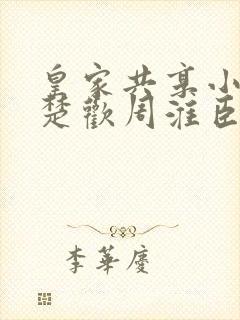 皇家共享小
楚歡周淮臣
李華慶